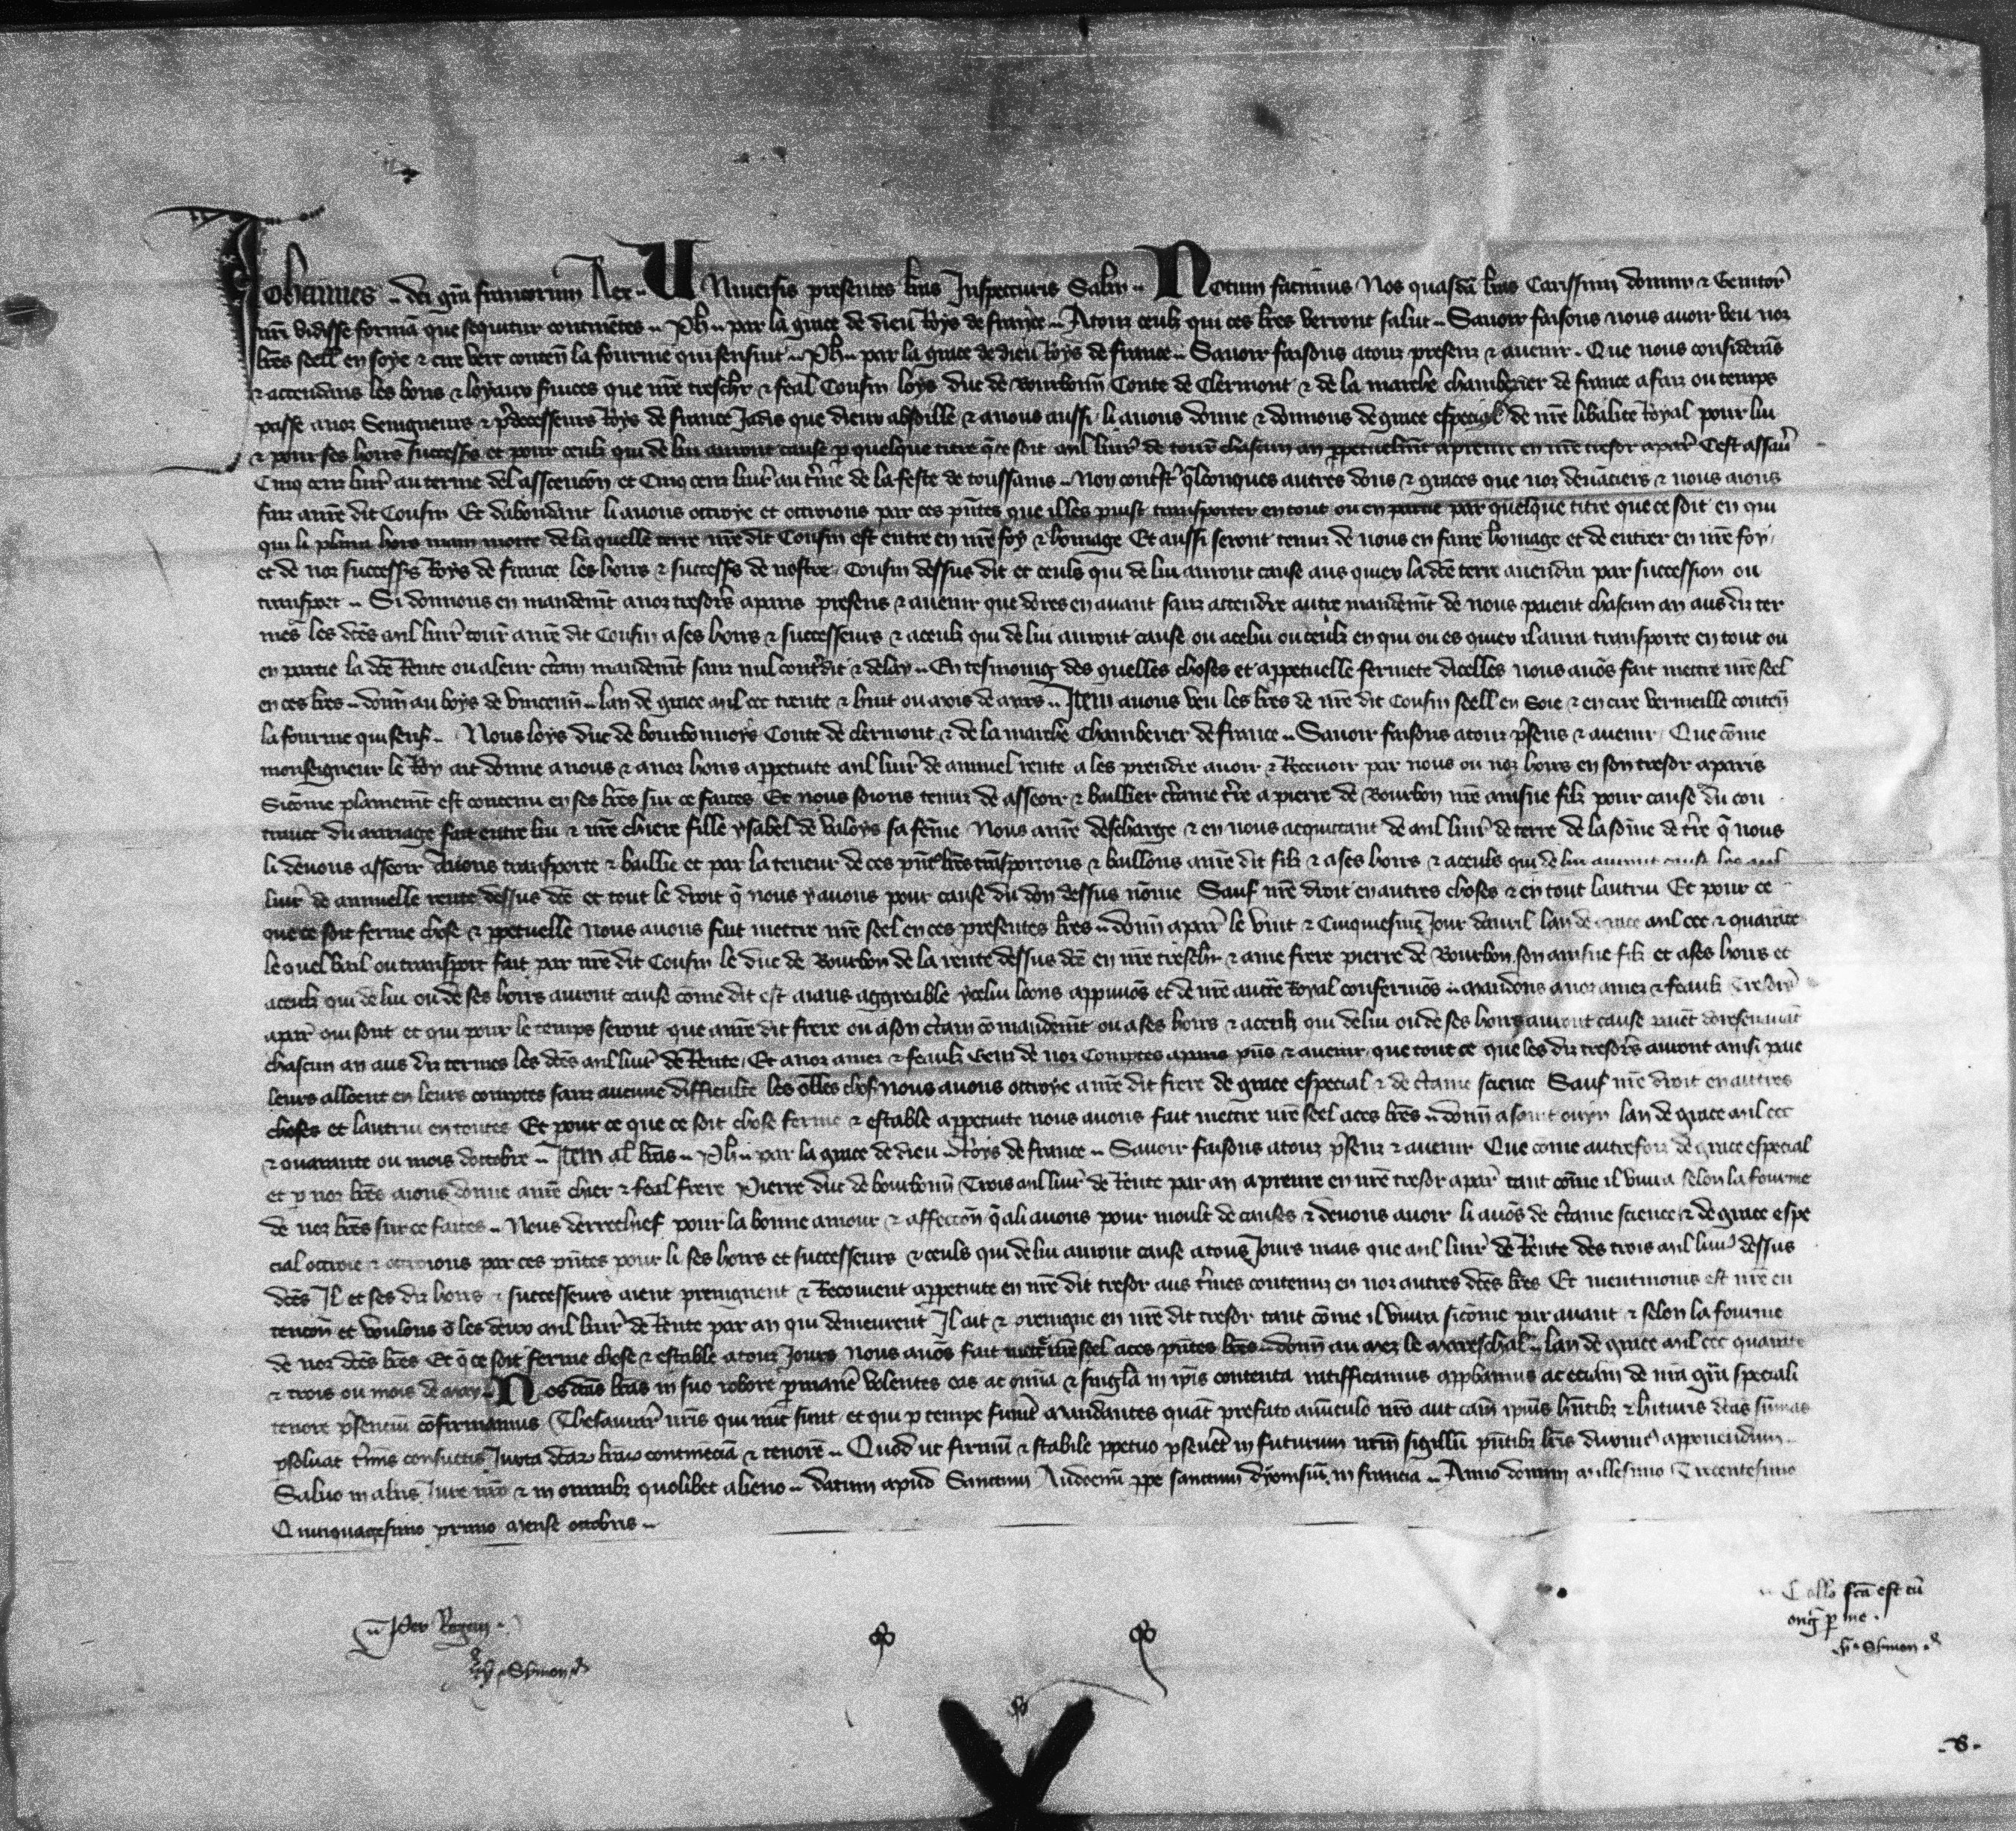 Johannes .. dei gra francorum Rex .. Universis presentes lras Inspecturis Salm .. Notum facimus Nos quasda lras Carissimi domini & Genitor
nri vidisse forma que sequitur continetes .. Ph .. par la grace de dieu Roys de france .. Atouz ceulz qui ces lres verront salut .. Savoir faisons nous avoir veu noz
lres seell en soye & cire vert conten la fourme qui sensuit .. Ph .. par la grace de dieu Roys de france .. Savoir faisons atouz presenz & avenir . Que nous considerans
& attendans les bons & loyaux services que nre treschr & feal Cousin loys duc de Bourbonn Conte de Clermont & de la marche chamberier de france a faiz ou temps
passe anoz Seingneurs & predecesseurs Roys de france Jadis que dieux absoille & anous aussi li avons donne & donnons de grace especial de nre libalite Royal pour lui
& pour ses hoirs Successrs et pour ceulz qui de lui auront cause p quelque titre q ce soit mil livr de tourn chascun an perpetuelmt aprenre en nre tresor apar Cest assav
Cinq cenz livr au terme del asscencon et Cinq cenz livr au tme de la feste de toussains .. Non contrest qlconques autres dons & graces que noz devaciers & nous aions
faiz anre dit Cousin Et dabondant li avons ottroye et ottroions par ces pntes que il les puist transporter en tout ou en partie par quelque titre que ce soit en qui
qui li plaira hors main morte de la quelle terre nre dit Cousin est entre en nre foy & homage Et aussi seront tenuz de nous en faire homage et de entrer en nre foy
et de noz successrs Roys de france les hoirs & successrs de nostre Cousin dessus dit et ceuls qui de lui auront cause aus quiex la dce terre avendra par succession ou
transport .. Si donnons en mandemt anoz tresors aparis presens & avenir que dores en avant sanz attendre autre mandemt de nous paient chascun an aus diz ter
mes les dces mil livr tourn anre dit Cousin a ses hoirs & successeurs & aceulz qui de lui auront cause ou acelui ou ceulz en qui ou es quiex il aura transporte en tout ou
en partie la dce Rente ou aleur ctain mandemt sanz nul contredit & delay .. En tesmoing des quelles choses et appetuelle fermete dicelles nous avos fait mettre nre seel
en ces lres .. donn au boys de vincenn .. lan de grace mil ccc trente & huit ou mois de mars .. Item avons veu les lres de nre dit Cousin seell en Soie & en cire vermeille conten
la fourme qui sens .. Nous loys duc de bourbonnoys Conte de clermont & de la marche Chamberier de france .. Savoir faisons atouz psens & avenir Que come
monseigneur le Roy ait donne anous & anoz hoirs appetuite mil livr de annuel rente a les prendre avoir & Recevoir par nous ou noz hoirs en son tresor aparis
Sicome plainemt est contenu en ses lres sur ce faites Et nous soions tenuz de asseoir & baillier ctaine tre a pierre de Bourbon nre ainsne filz pour cause du con
trauct du mariage fait entre lui & nre chiere fille ysabel de valoys sa feme Nous anre descharge & en nous acquittant de mil livr de terre de la some de tre q nous
li devons asseoir avons transporte & baillie et par la teneur de ces pnt lres tnsportons & baillons anre dit filz & ases hoirs & aceuls qui de lui auront cause les mil
livr de annuelle rente dessus dce et tout le droit q nous y avons pour cause du don dessus nome Sauf nre droit en autres choses & en tout lautrui Et pour ce
que ce soit ferme chose & ppetuelle Nous avons fait mettre nre seel en ces presentes lres .. donn apar le vint & Cinquiesme Jour davril lan de grace mil ccc & quarante
le quel bail ou transport fait par nre dit Cousin le duc de Bourbon de la rente dessus dce en nre treschr & ame frere pierre de Bourbon son ainsne filz et ases hoirs et
aceulz qui de lui ou de ses hoirs auront cause come dit est aians aggreable ycelui loons appvuos et de nre auctte Royal confermos .. mandons anoz amez & feaulz Tresors
apar qui sont et qui pour le temps seront que anre dit frere ou ason ctain comandemt ou a ses hoirs & aceulz qui de lui ou de ses hoirs auront cause paiet doresenavat
chascun an aus diz termes les dces mil livr de Rente Et anoz amez & feaulz Genz de noz Comptes aparis pns & avenir que tout ce que les diz tresors auront ainsi paie
leurs alloent en leurs comptes sanz aucune difficulte les qlles chos nous avons ottroye anre dit frere de grace especial & de ctaine science Sauf nre droit en autres
choses et lautrui en toutes Et pour ce que ce soit chose ferme & estable appetuite nous avons fait mettre nre seel aces lres .. donn asaint ouyn lan de grace mil ccc
& quarante ou mois doctobre .. Item al lras .. Ph .. par la grace de dieu .. Roys de france .. Savoir faisons atouz psenz & avenir Que come autresfoiz de grace especial
et p noz lres aions donne anre chier & feal frere Pierre duc de bourbonn Trois mil livr de Rente par an a prenre en nre tresor apar tant come il vivra selon la fourme
de noz lres sur ce faites .. Nous derrechief pour la bonne amour & affeccon q ali avons pour moult de causes & devons avoir li avos de ctaine science & de grace espe
cial ottroie & ottroions par ces pntes pour li ses hoirs et successeurs & ceuls qui de lui auront cause atous Jours mais que mil livr de Rente des trois mil livr dessus
dces Il et ses diz hoirs & successeurs aient preingnent & Recoivent appetuite en nre dit tresor aus tmes contenuz en noz autres dces lres Et nientmoins est nre en
tencon et voulons q les deux mil livr de Rente par an qui demeurent Il ait & preingne en nre dit tresor tant come il vivra sicome par avant & selon la fourme
de noz dces lres Et q ce soit ferme chose & estable atouz Jours nous avos fait mettre nre seel aces pntes lres .. donn au mez le mareschal .. lan de grace mil ccc quarante
& trois ou mois de may .. Nos dcas lras in suo robore pmane volentes eas ac omia & singla in ipis contenta ratifficamus appbamus ac eciam de nra gra speciali
tenore psencium cofirmamus Thesaurar nris qui nuc sunt et qui p tempe fuerit mandantes quat prefato avuculo nro aut cam ipius hntibz & hituris dcas sumas
psolvat tmis consuetis Juxta dcarum lrarum continecia & tenore .. Quod ut firmu & stabile ppetuo pseveret in futurum nrm sigillu pntibz lris duximus apponendum ..
Salvo in aliis Jure nro & in omnibz quolibet alieno .. datum apud Sanctum Audoenu ppe sanctum dyonisiu in francia .. Anno domini millesimo Trecentesimo
Quinquagesimo primo mense octobris ..
Per Regem .
Symon
Collo fca est cu
orig p me .
Symon